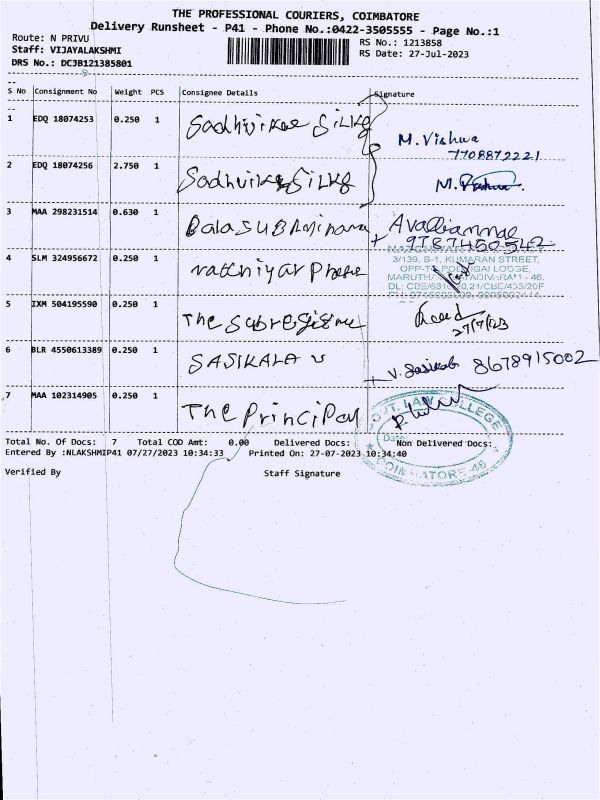 THE PROFESSIONAL COURIERS, COIMBATORE
Delivery Runsheet - P41 - Phone No.:0422-3505555 - Page No.:1
Route: N PRIVU
Staff: VIJAYALAKSHMI
DRS No.: DCJB121385801
RS No.: 1213858
RS Date: 27-Jul-2023
S No Consignment No Weight PCS Consignee Details Signature
1 EDQ 18074253 0.250 1 Sadhvikae SiLKs M. Vishwa
7708872221
2 EDQ 18074256 2.750 1 Sadhvika SiLKs M.
3 MAA 298231514 0.630 1 Avalliammae
9787450542
3/139, B-1, KUMARAN STREET,
4 SLM 324956672 0.250 1 vathiyar
5 IXM 504195590 0.250 1 The
27/7/23
6 BLR 4550613389 0.250 1 SASIKALA V V. Sasikala 8678915002
7 MAA 102314905 0.250 1 The Principal
GOVT. LAW COLLEGE
Date:
COIMBATORE-46
Total No. Of Docs: 7 Total COD Amt: 0.00 Delivered Docs: Non Delivered Docs:
Entered By :NLAKSHMIP41 07/27/2023 10:34:33 Printed On: 27-07-2023 10:34:40
Verified By Staff Signature